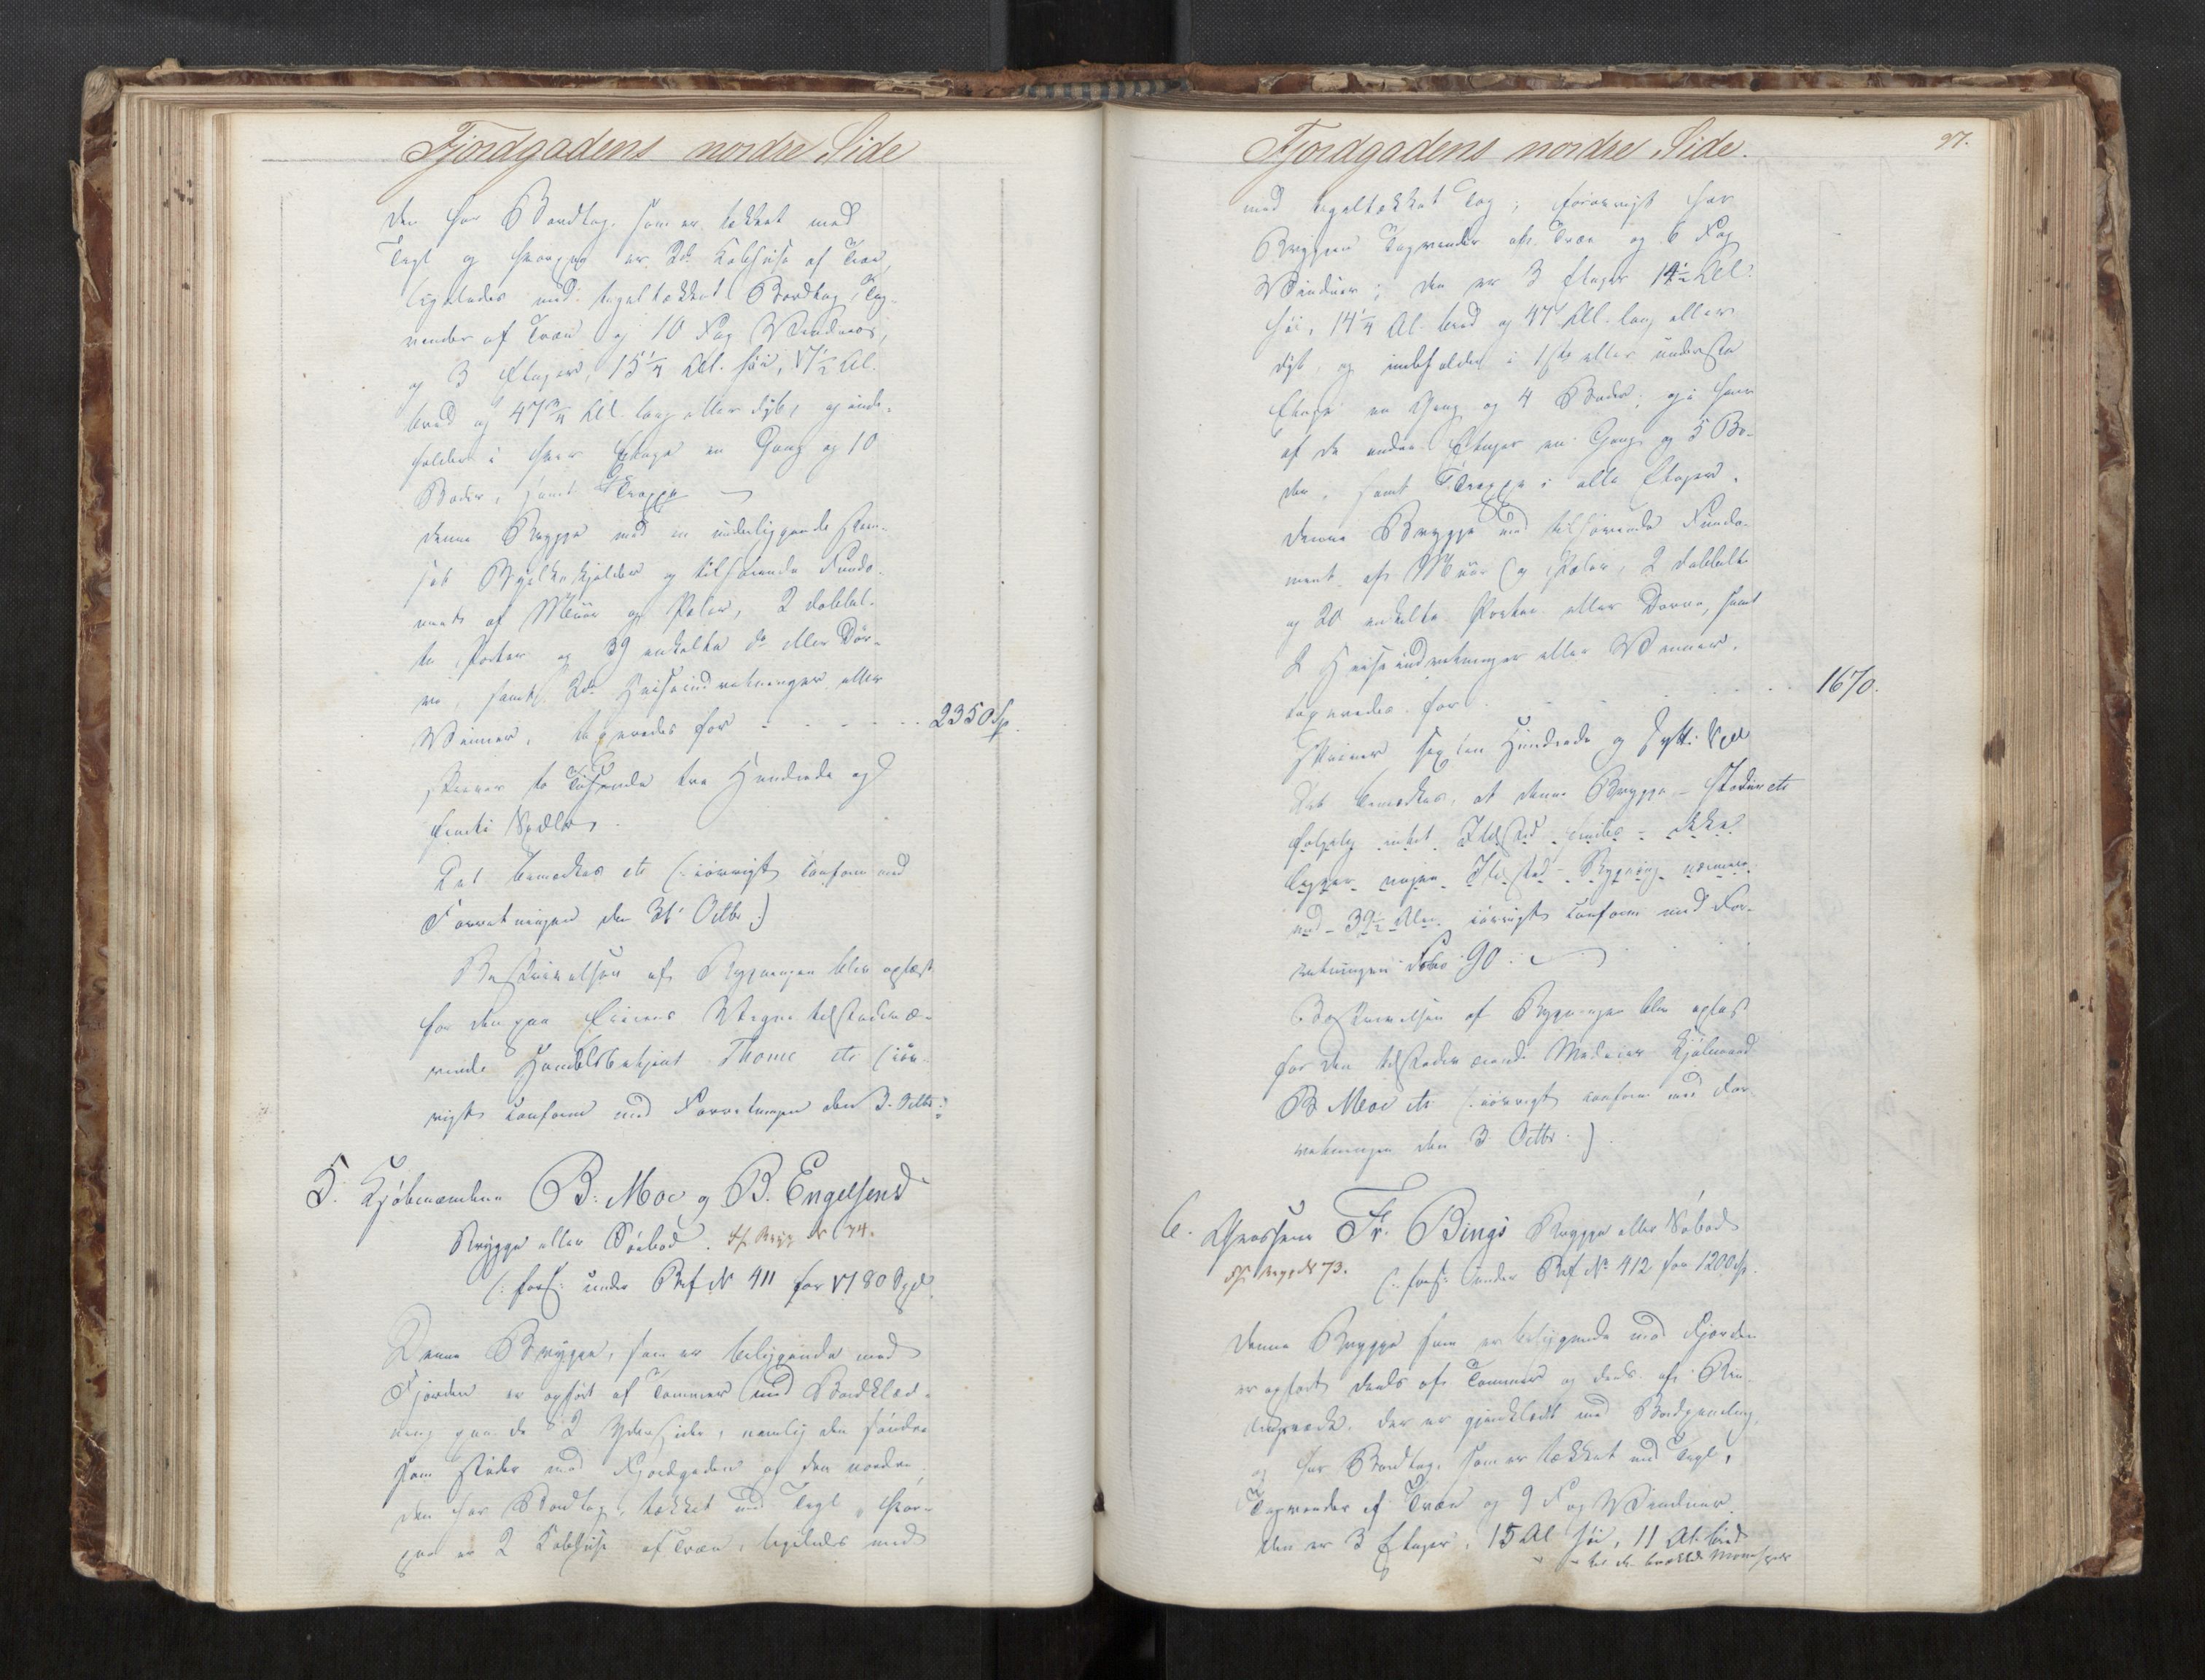 Fjordgadens nordre Side
den har Bordtag, som er tækket med
Tegl og hvorpaa er 2de Kobhuse af Træ,
ligeledes med tegltækket Bordtag, Tag-
render af Træ og 10 Fag Vinduer,
og 3 Etager, 15¼ Al. høi, 17½ Al.
bred og 47¾ Al. lang eller dyb, og inde-
holder i hver Etage en Gang og 10
Boder, samt Trappe
Denne Brygge med en underliggende
Bjelkekjelder og tilhørende Funda-
ment af Muur og Pæler, 2 dobbel-
te Porter og 39 enkelte do eller Dør-
re, samt 2de Heiseindretninger eller
Vinner, taxeredes for - - - - 2350 Sp.
skriver to Tusende tre Hundrede og
femti Spdlr.
Det bemærkes etc (: iøvrigt conform med
Forretningen den 31 Octbr :)
Beskrivelsen af Bygningen blev oplæst
for den paa Eierens Vegne tilstedevæ-
rende Handelsbetjent Thome etc (: iøv-
rigt conform med Forretningen den 3 Octbr :)
5. Kjøbmændene B. Moe og B. Engelsens
Brygge eller Søebod. No 74.
(: fors: under Brf No 411 for 1780 Spd.
Denne Brygge, som er beliggende med
Fjorden er opført af Tømmer med Bordklæd-
ning paa de 2 Ydersider, nemlig den søndre
som støder mod Fjordgaden og den nordre,
den har Bordtag, tækket med Tegl, hvor-
paa er 2 Kobhuse af Træ, ligeledes med
Fjordgadens nordre Side.
97.
med tegltækket Tag; forøvrigt har
Bryggen Tagrender af Træ og 6 Fag
Vinduer; den er 3 Etager 14½ Al.
høi, 14¼ Al. bred og 47 Al. lang eller
dyb, og indeholder i 1ste eller underste
Etage en Gang og 4 Boder; og i hver
af de andre Etager en Gang og 5 Bo-
der, samt Trappe i alle Etager.
Denne Brygge med tilhørende Funda-
ment af Muur og Pæler, 2 dobbelte
og 20 enkelte Porter eller Dørre, samt
2 Heiseindretninger eller Vinner,
taxeredes for - - - - 1670.
skriver sexten Hundrede og sytti Spd
Det bemærkes, at denne Brygge - etc
følgelig intet Ildsted - ikke
ligger nogen Ildsted - Bygning nærmere
end - 39½ Alen. iøvrigt conform med For-
retningen Folio 90.
Beskrivelsen af Bygningen blev oplæst
for den tilstedeværende Medeier Kjøbmand
B Moe etc (: iøvrigt conform med For-
retningen den 3 Octbr :)
6. Grosserer Fr. Bings Brygge eller Søbod
No 73. (: fors: under Brf No 412 for 1200 Sp.
Denne Brygge som er beliggende mod Fjorden
er opført deels af Tømmer og deels af Bin-
dingsværk, der er gjenklædt med Bordpanling,
og har Bordtag, som er tækket med Tegl,
Tagrender af Træ og 9 Fag Vinduer
den er 3 Etager, 15 Al høi, 11 Al. bred